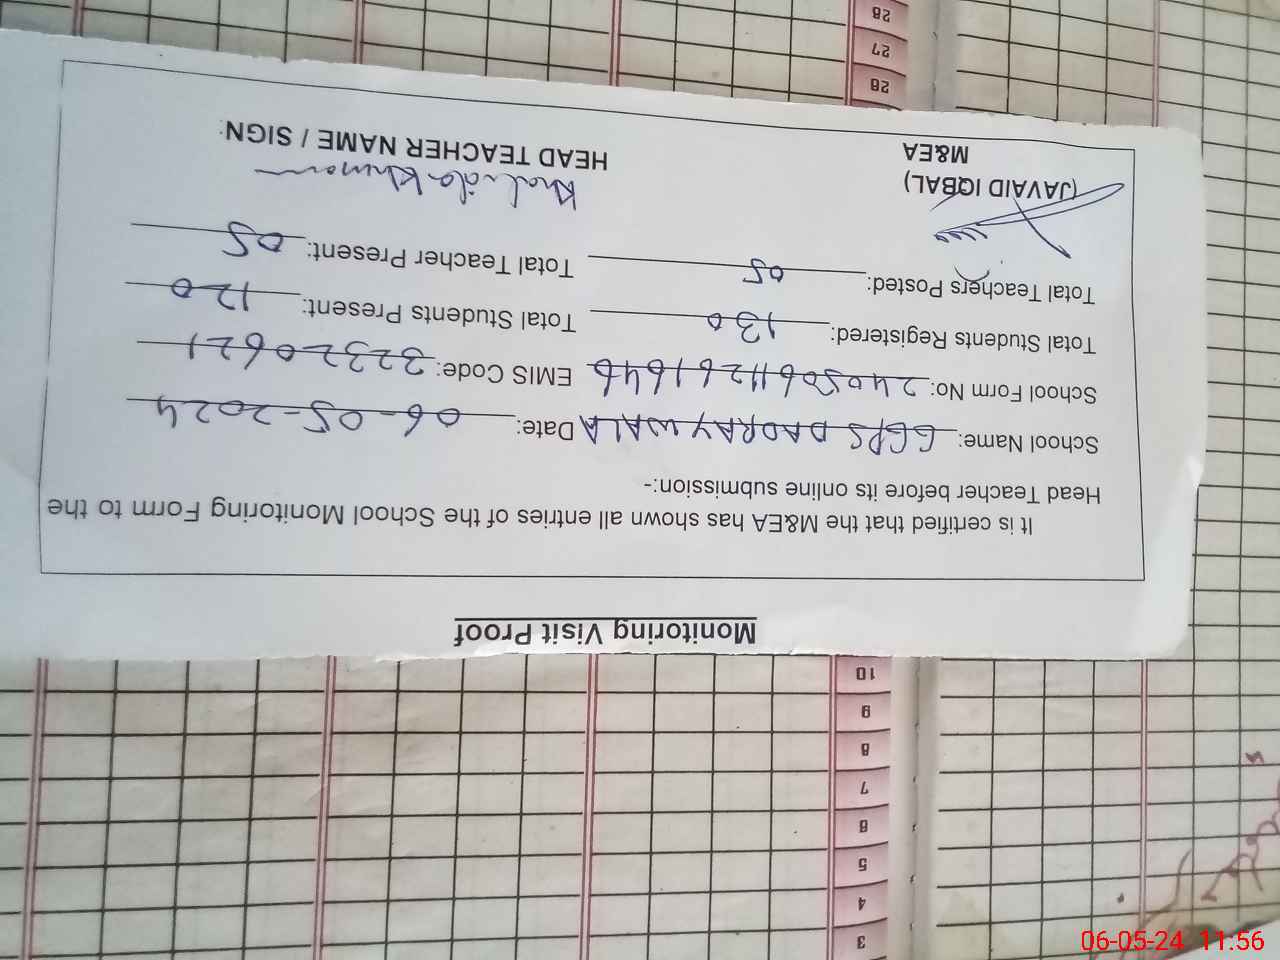 Monitoring Visit Proof
It is certified that the M&EA has shown all entries of the School Monitoring Form to the
Head Teacher before its online submission:-
School Name: GGPS DADRAY WALA Date: 06-05-2024
School Form No: 24050611261646 EMIS Code: 32320621
Total Students Registered: 130 Total Students Present: 120
Total Teachers Posted: 05 Total Teacher Present: 05
(JAVAID IQBAL) Khalida
M&EA HEAD TEACHER NAME / SIGN:
28
27
26
10
9
8
7
6
5
4
3
06-05-24 11:56